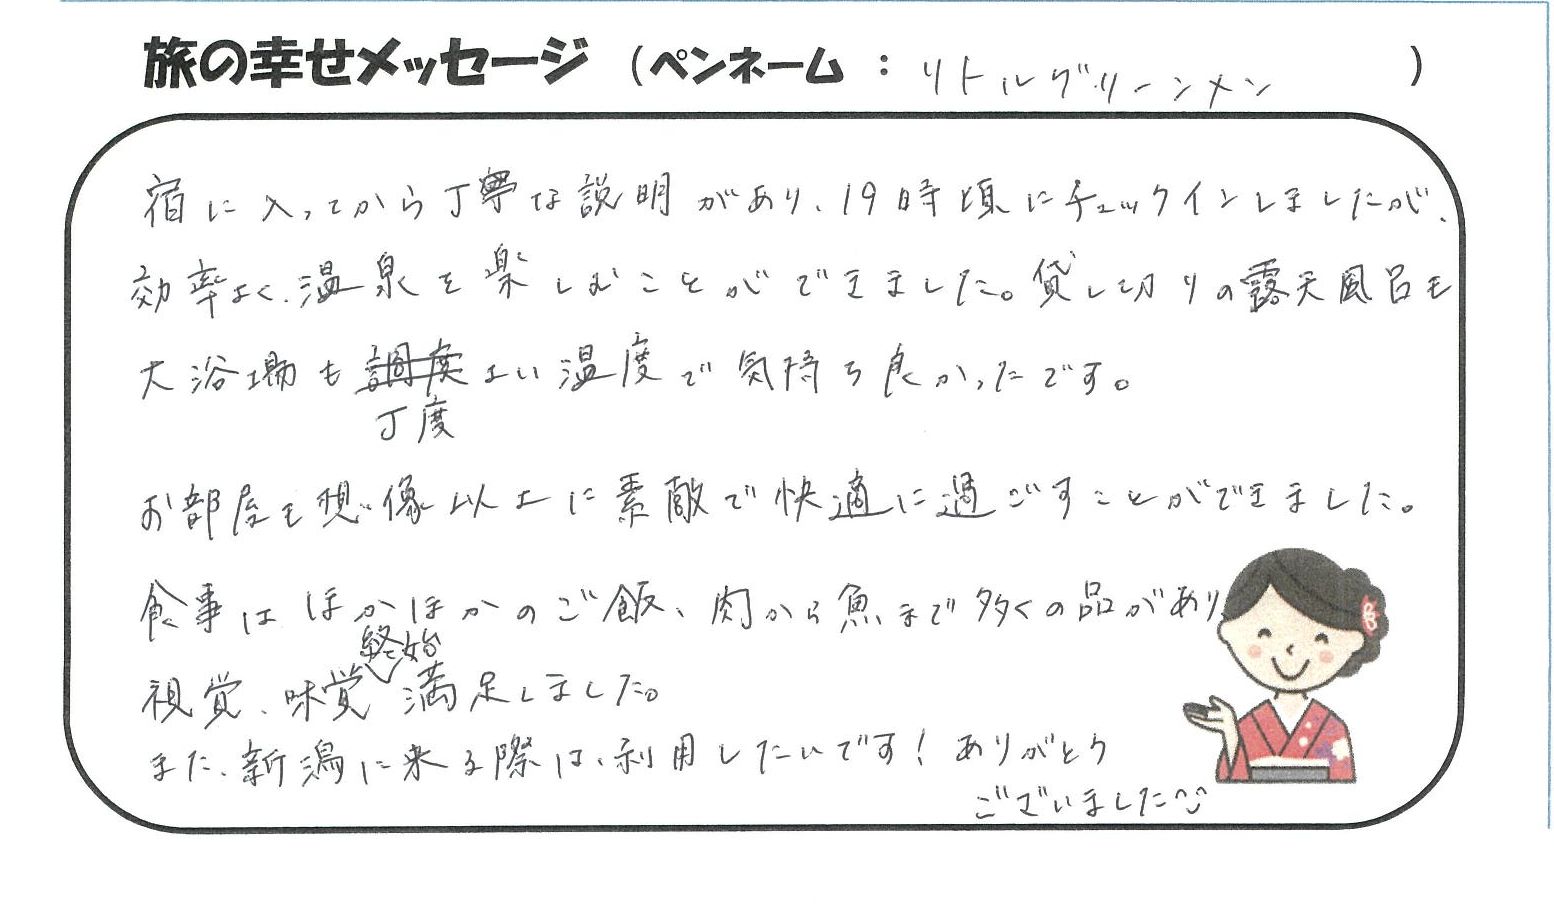 旅の幸せメッセージ（ペンネーム：リトルグリーンメン）
宿に入ってから丁寧な説明があり、19時頃にチェックインしましたが、
効率よく、温泉を楽しむことができました。貸し切りの露天風呂も
大浴場も調度よい温度で気持ち良かったです。
丁度
お部屋も想像以上に素敵で快適に過ごすことができました。
食事はほかほかのご飯、肉から魚まで多くの品があり
終始
視覚、味覚満足しました。
また、新潟に来る際は、利用したいです！ありがとう
ございました^^